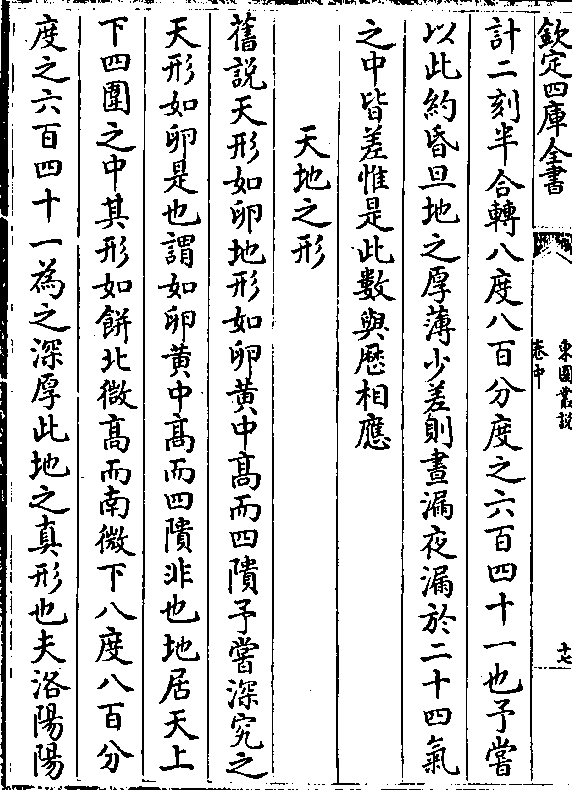 欽定四庫全書
東園叢說
卷中
十七
計二刻半合轉八度八百分度之六百四十一也予嘗
以此約昏旦地之厚薄少差則晝漏夜漏於二十四氣
之中皆差惟是此數與厯相應
天地之形
舊說天形如卵地形如卵黄中髙而四隤予嘗深究之
天形如卵是也謂如卵黄中髙而四隤非也地居天上
下四圍之中其形如餅北微髙而南微下八度八百分
度之六百四十一為之深厚此地之真形也夫洛陽陽